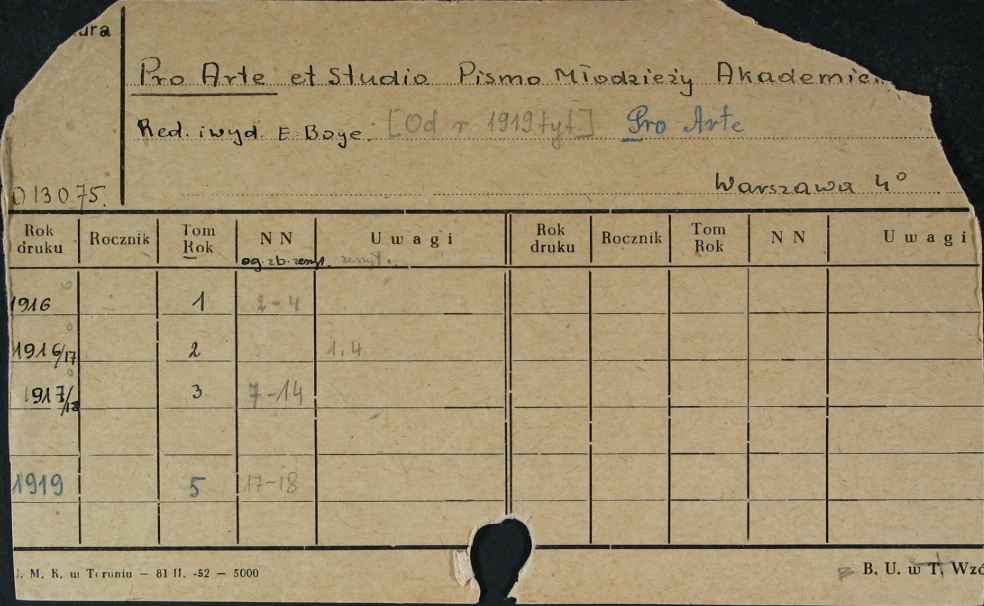 ura
Pro Arte et Studio Pismo Młodzieży Akademic
Red. i wyd. E. Boye. [Od r 1919 tyt] Pro Arte
Warszawa 4°
D13075.
Rok druku Rocznik Tom Rok NN Uwagi Rok druku Rocznik Tom Rok NN Uwagi
og. zb. zeszt. zeszyt.
1916 1 2-4
1916/17 2 1,4
1917/18 3 7-14
1919 5 17-18
J. M. K. w Toruniu — 81 II. -52 — 5000
B. U. w T. Wzó